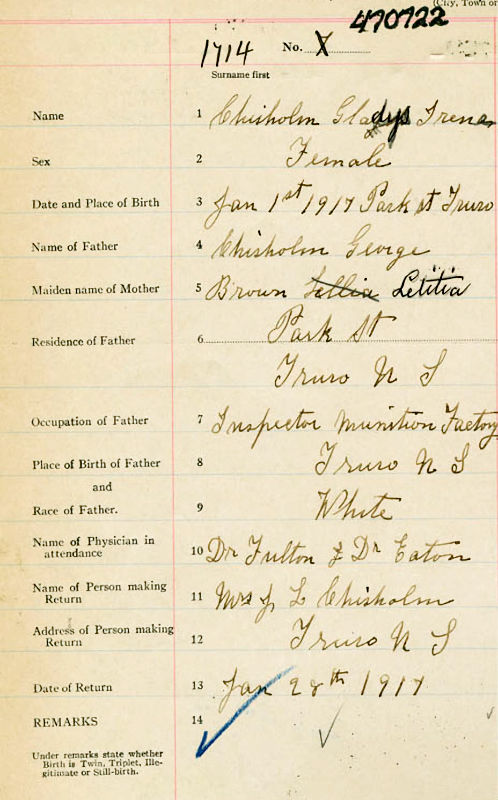 (City, Town or
470722
1714 No. X
Surname first
Name 1 Chisholm Gladys Irena
Sex 2 Female
Date and Place of Birth 3 Jan 1st 1917 Park st Truro
Name of Father 4 Chisholm George
Maiden name of Mother 5 Brown Lellia Letitia
Residence of Father 6 Park St
Truro N S
Occupation of Father 7 Inspector Munition Factory
Place of Birth of Father 8 Truro N S
and
Race of Father. 9 White
Name of Physician in
attendance 10 Dr Fulton & Dr Eaton
Name of Person making
Return 11 Mrs J L Chisholm
Address of Person making
Return 12 Truro N S
Date of Return 13 Jan 28th 1917
REMARKS 14
Under remarks state whether
Birth is Twin, Triplet, Ille-
gitimate or Still-birth.